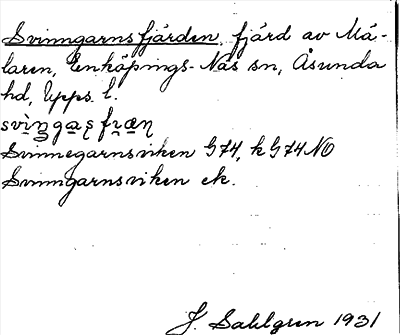 Svinngarnsfjärden, fjärd av Mä-
laren, Enköpings-Näs sn, Åsunda
hd, Upps. l.
Svinnegarnsviken G74, k G74 NO
Svinngarnsviken ek.
J. Sahlgren 1931